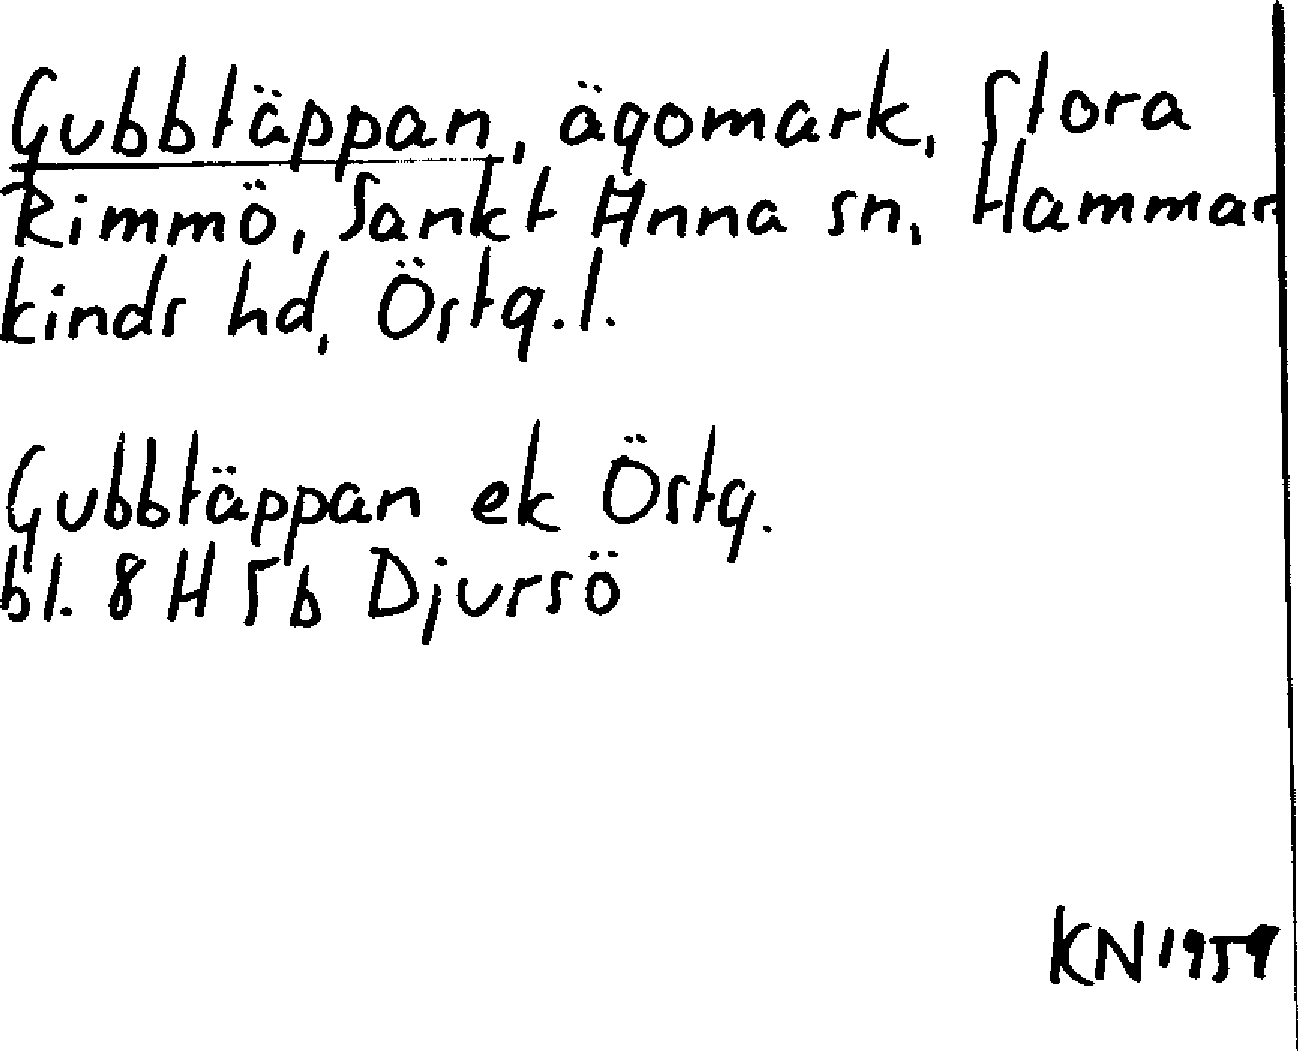 Gubbtäppan, ägomark, Stora
Rimmö, Sankt Anna sn, Hammar
kinds hd, Östg.l.
Gubbtäppan ek Östg.
bl. 8 H 5 b Djursö
KN 1959